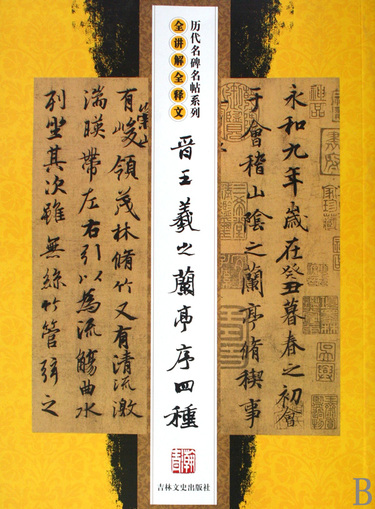 历代名碑名帖系列
全讲解全释文
晋王羲之蘭亭序四種
吉林文史出版社
永和九年歲在癸丑暮春之初會
于會稽山陰之蘭亭脩稧事
崇山
有峻領茂林脩竹又有清流激
湍暎帶左右引以為流觴曲水
列坐其次雖無絲竹管弦之
B